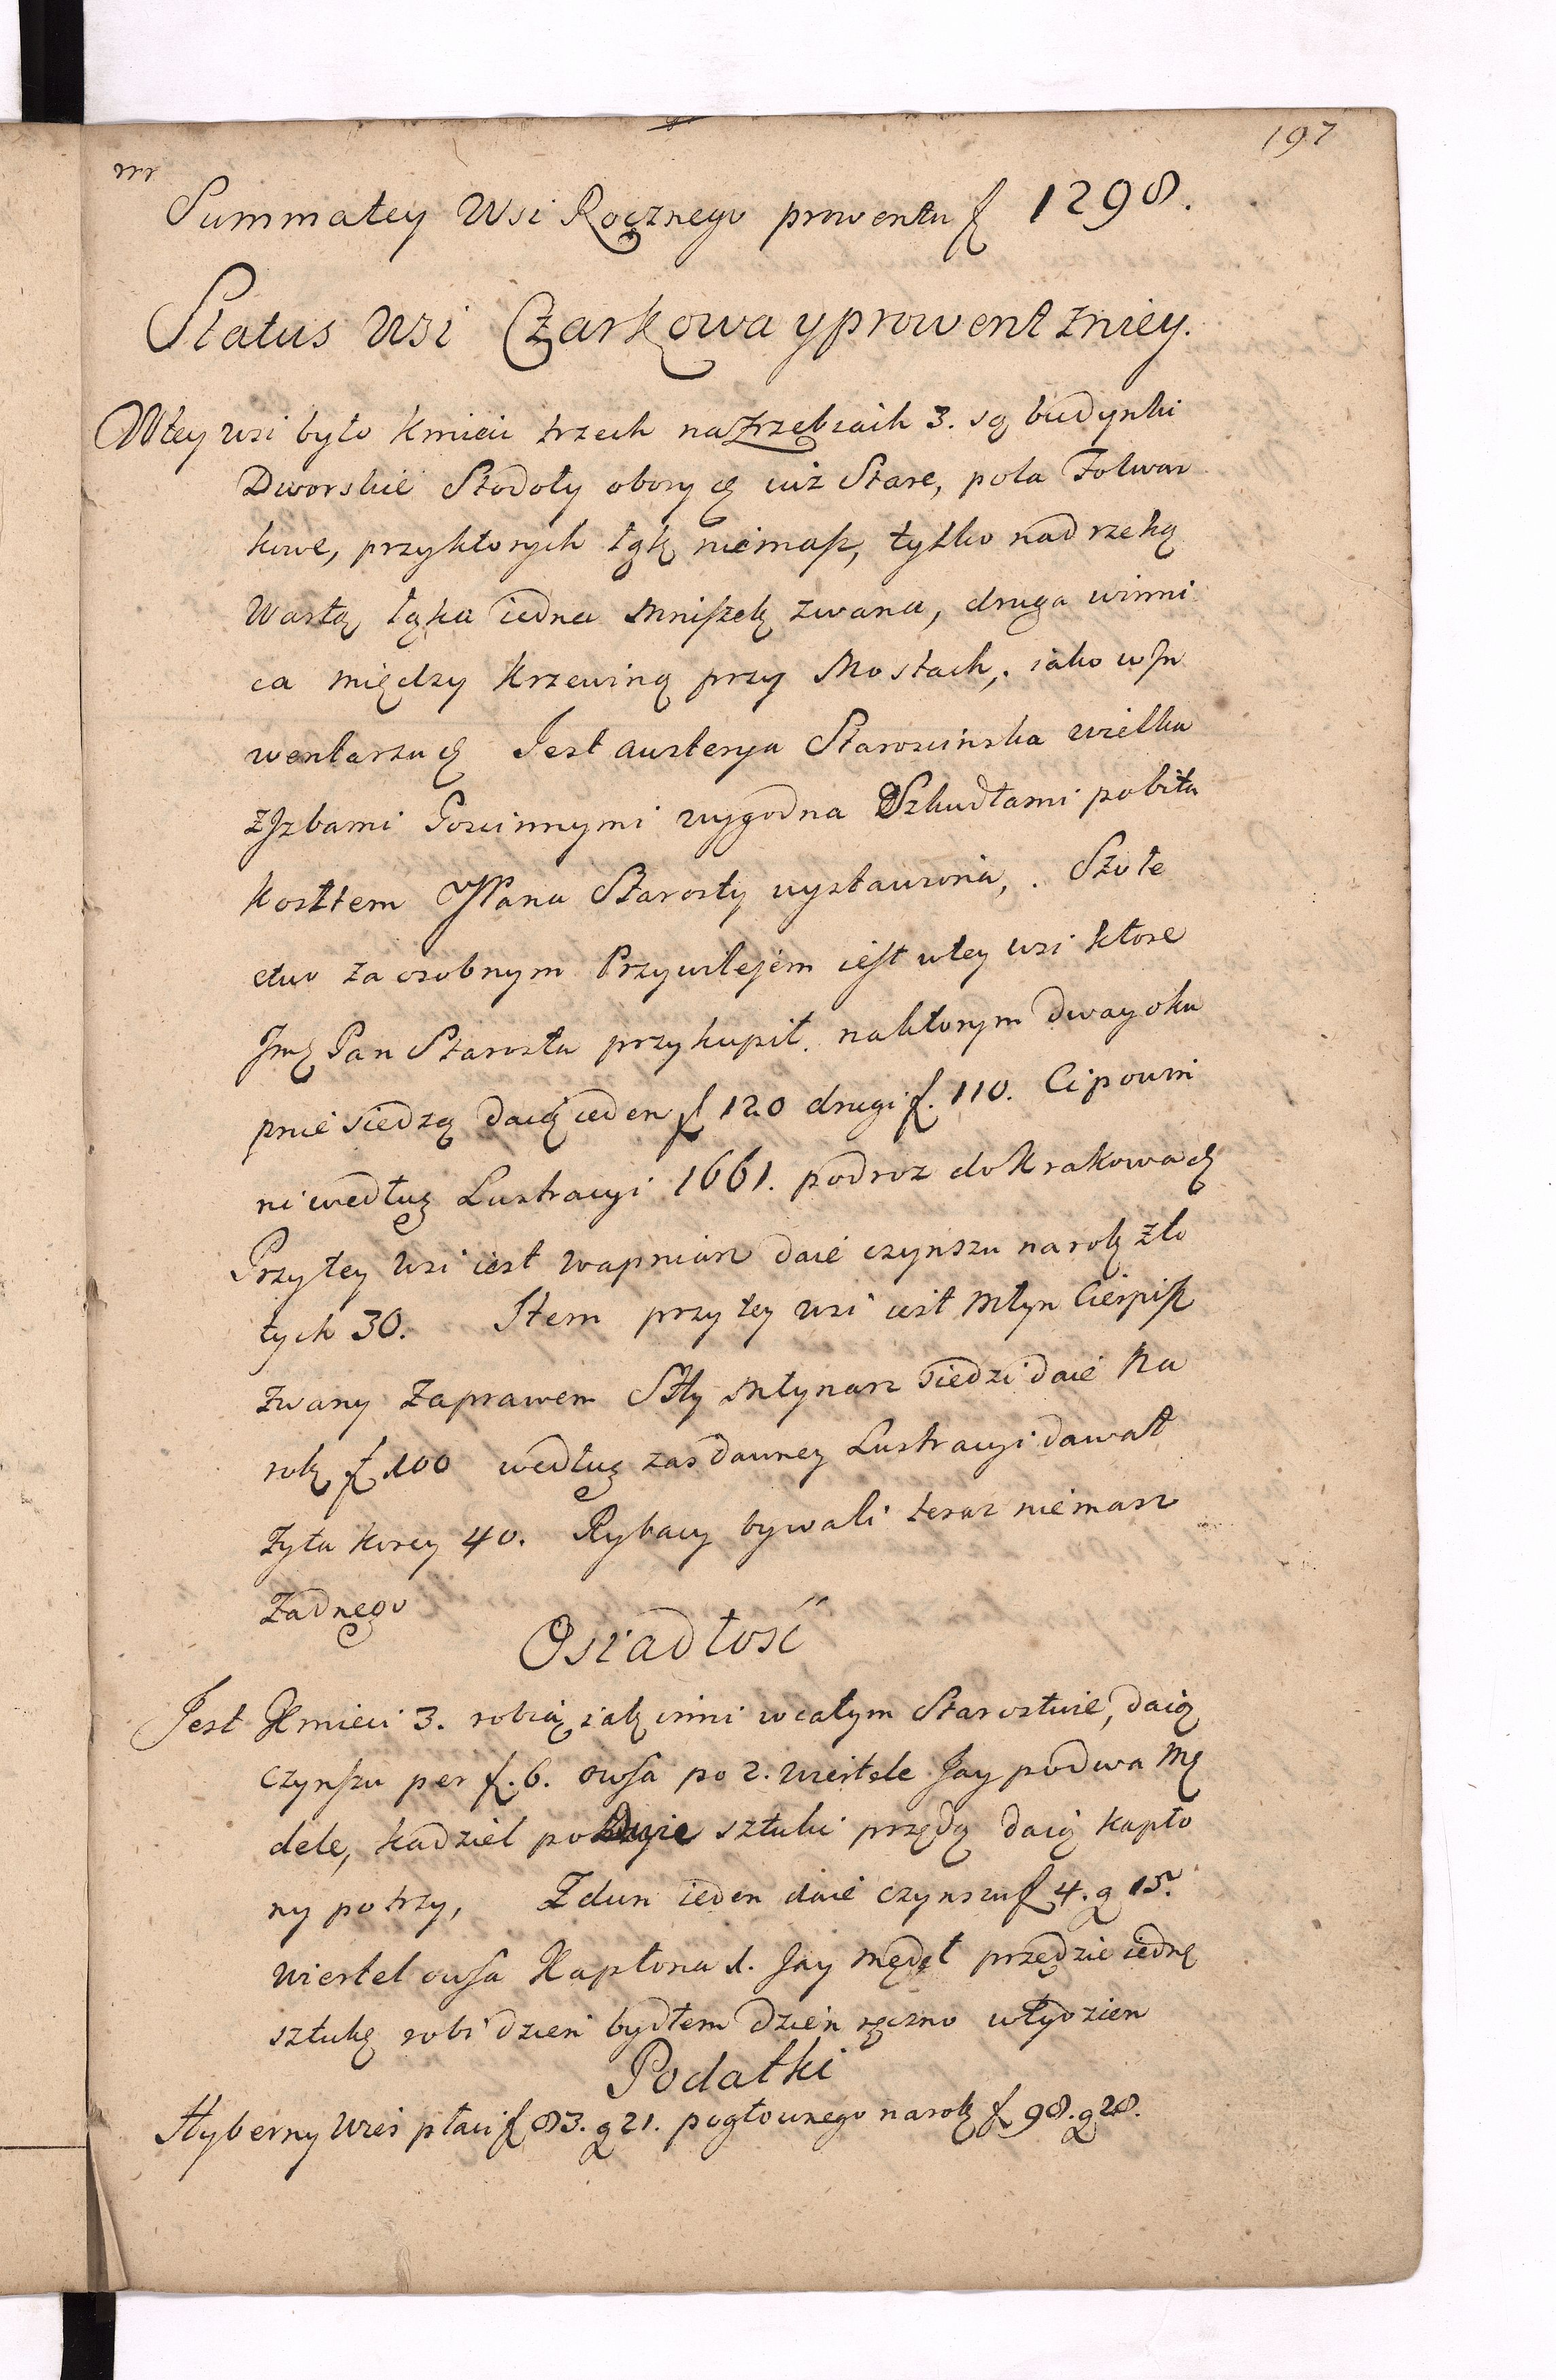 197
Summa tey Wsi Rocznego prowentu f 1298.
Status Wsi Czarkowa y prowent zniey.
Wtey wsi było kmieci trzech na Zrzebiach 3. są budynki
Dworskie Stodoły obory &c iuż Stare, pola Folwar
kowe, przyktorych łąk niemasz, tylko nad rzeką
Wartą łąka iedna Mniszek zwana, druga winni
ca między Krzewiną przy Mostach, iako w In
wentarzu &c Jest austerya Staroscinska wielka
z Jzbami Goscinnymi wygodna Szkudłami pobita
kosztem JPana Starosty wystawiona, . Szołe
ctwo za osobnym Przywilejem iest wtey wsi ktore
Jmć Pan Starosta przykupił. naktorym dway oku
pnie siedzą daią ieden f 120 drugi f. 110. Ci powin
ni według Lustracyi 1661. podroz do Krakowa &c
Przytey Wsi iest wapniarz daie czynszu na rok zło
tych 30. Item przy tey wsi iest Młyn Cierpisz
zwany Zaprawem Stty Młynarz siedzi daie Na
rok f 100 według zas dawney Lustracyi dawał
Zyta korcy 40. Rybacy bywali teraz niemasz
Zadnego
Osiadłość
Jest Kmieci 3. robią iak inni wcałym Starostwie, daią
czynszu per f. 6. owsa po 2. wiertele Jay podwa Mę
dele, kadziel po Dwie sztuki przędą daią kapło
ny po trzy, Zdun ieden daie czynszu f 4. g 15.
Wiertel owsa Kapłona 1. Jay Mędel przędzie iednę
sztukę robi dzien bydłem dzien ręczno w tydzien
Podatki
Hyberny Wies płaci f 83. g 21. pogłownego na rok f 98. g 28.